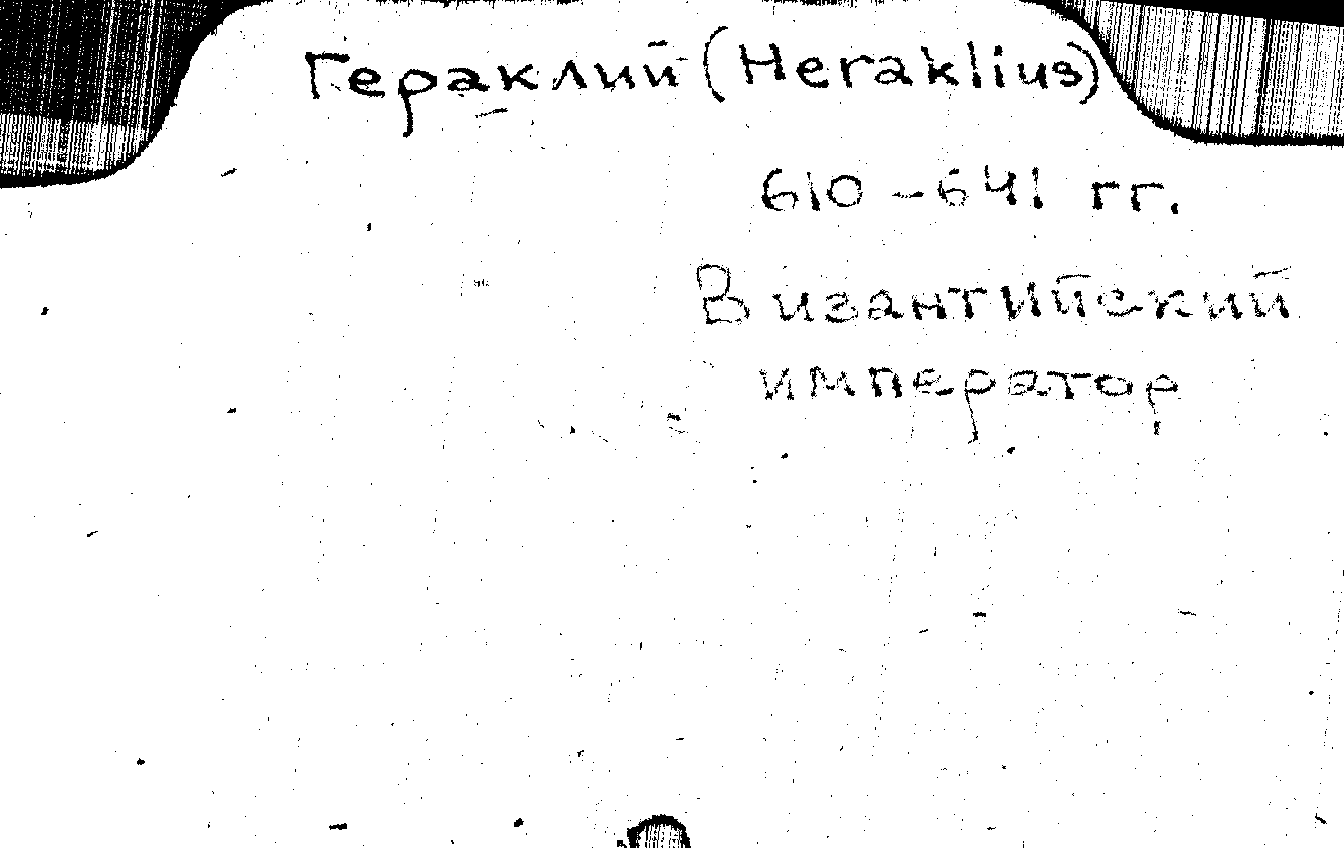 Гераклий (Heraklius)
610 – 641 гг.
Византийский
император